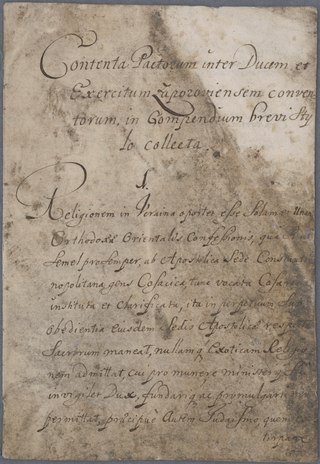 Contenta Pactorum inter Ducem et
Exercitum Zaporoviensem conven
torum, in Compendium brevi Sty
lo collecta.
1.
Religionem in Ucraina oportet esse Solam et Unam
Orthodoxæ Orientalis Confessionis, qua
semel pro semper, ab Apostolica Sede Constanti
nopolitana gens Cosacica tunc vocata Cosar
instituta et clarificata, ita in perpetuum sub
obedientia eiusdem Sedis Apostolicæ
Sacrorum maneat, nullamq́ Exoticam Religio
nem admittat, cui pro munere ministerÿ
invigilet Dux, fundariq́ae promulgari non
permittat, præcipuè Autem Judaismo, quem